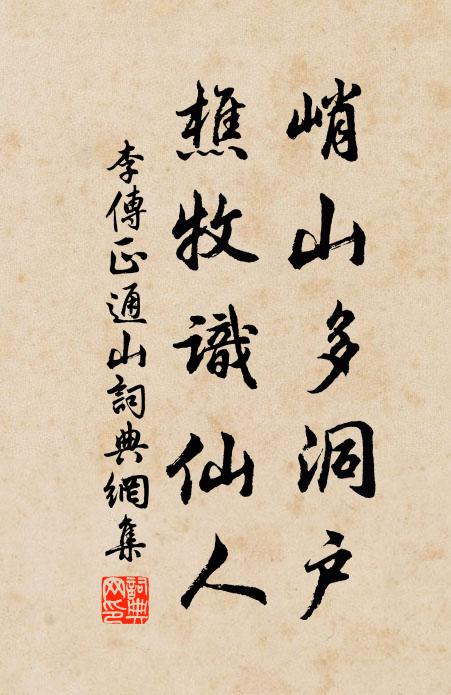 峭山多洞户
樵牧識仙人
李傳正通山詞典網集
詞典網印